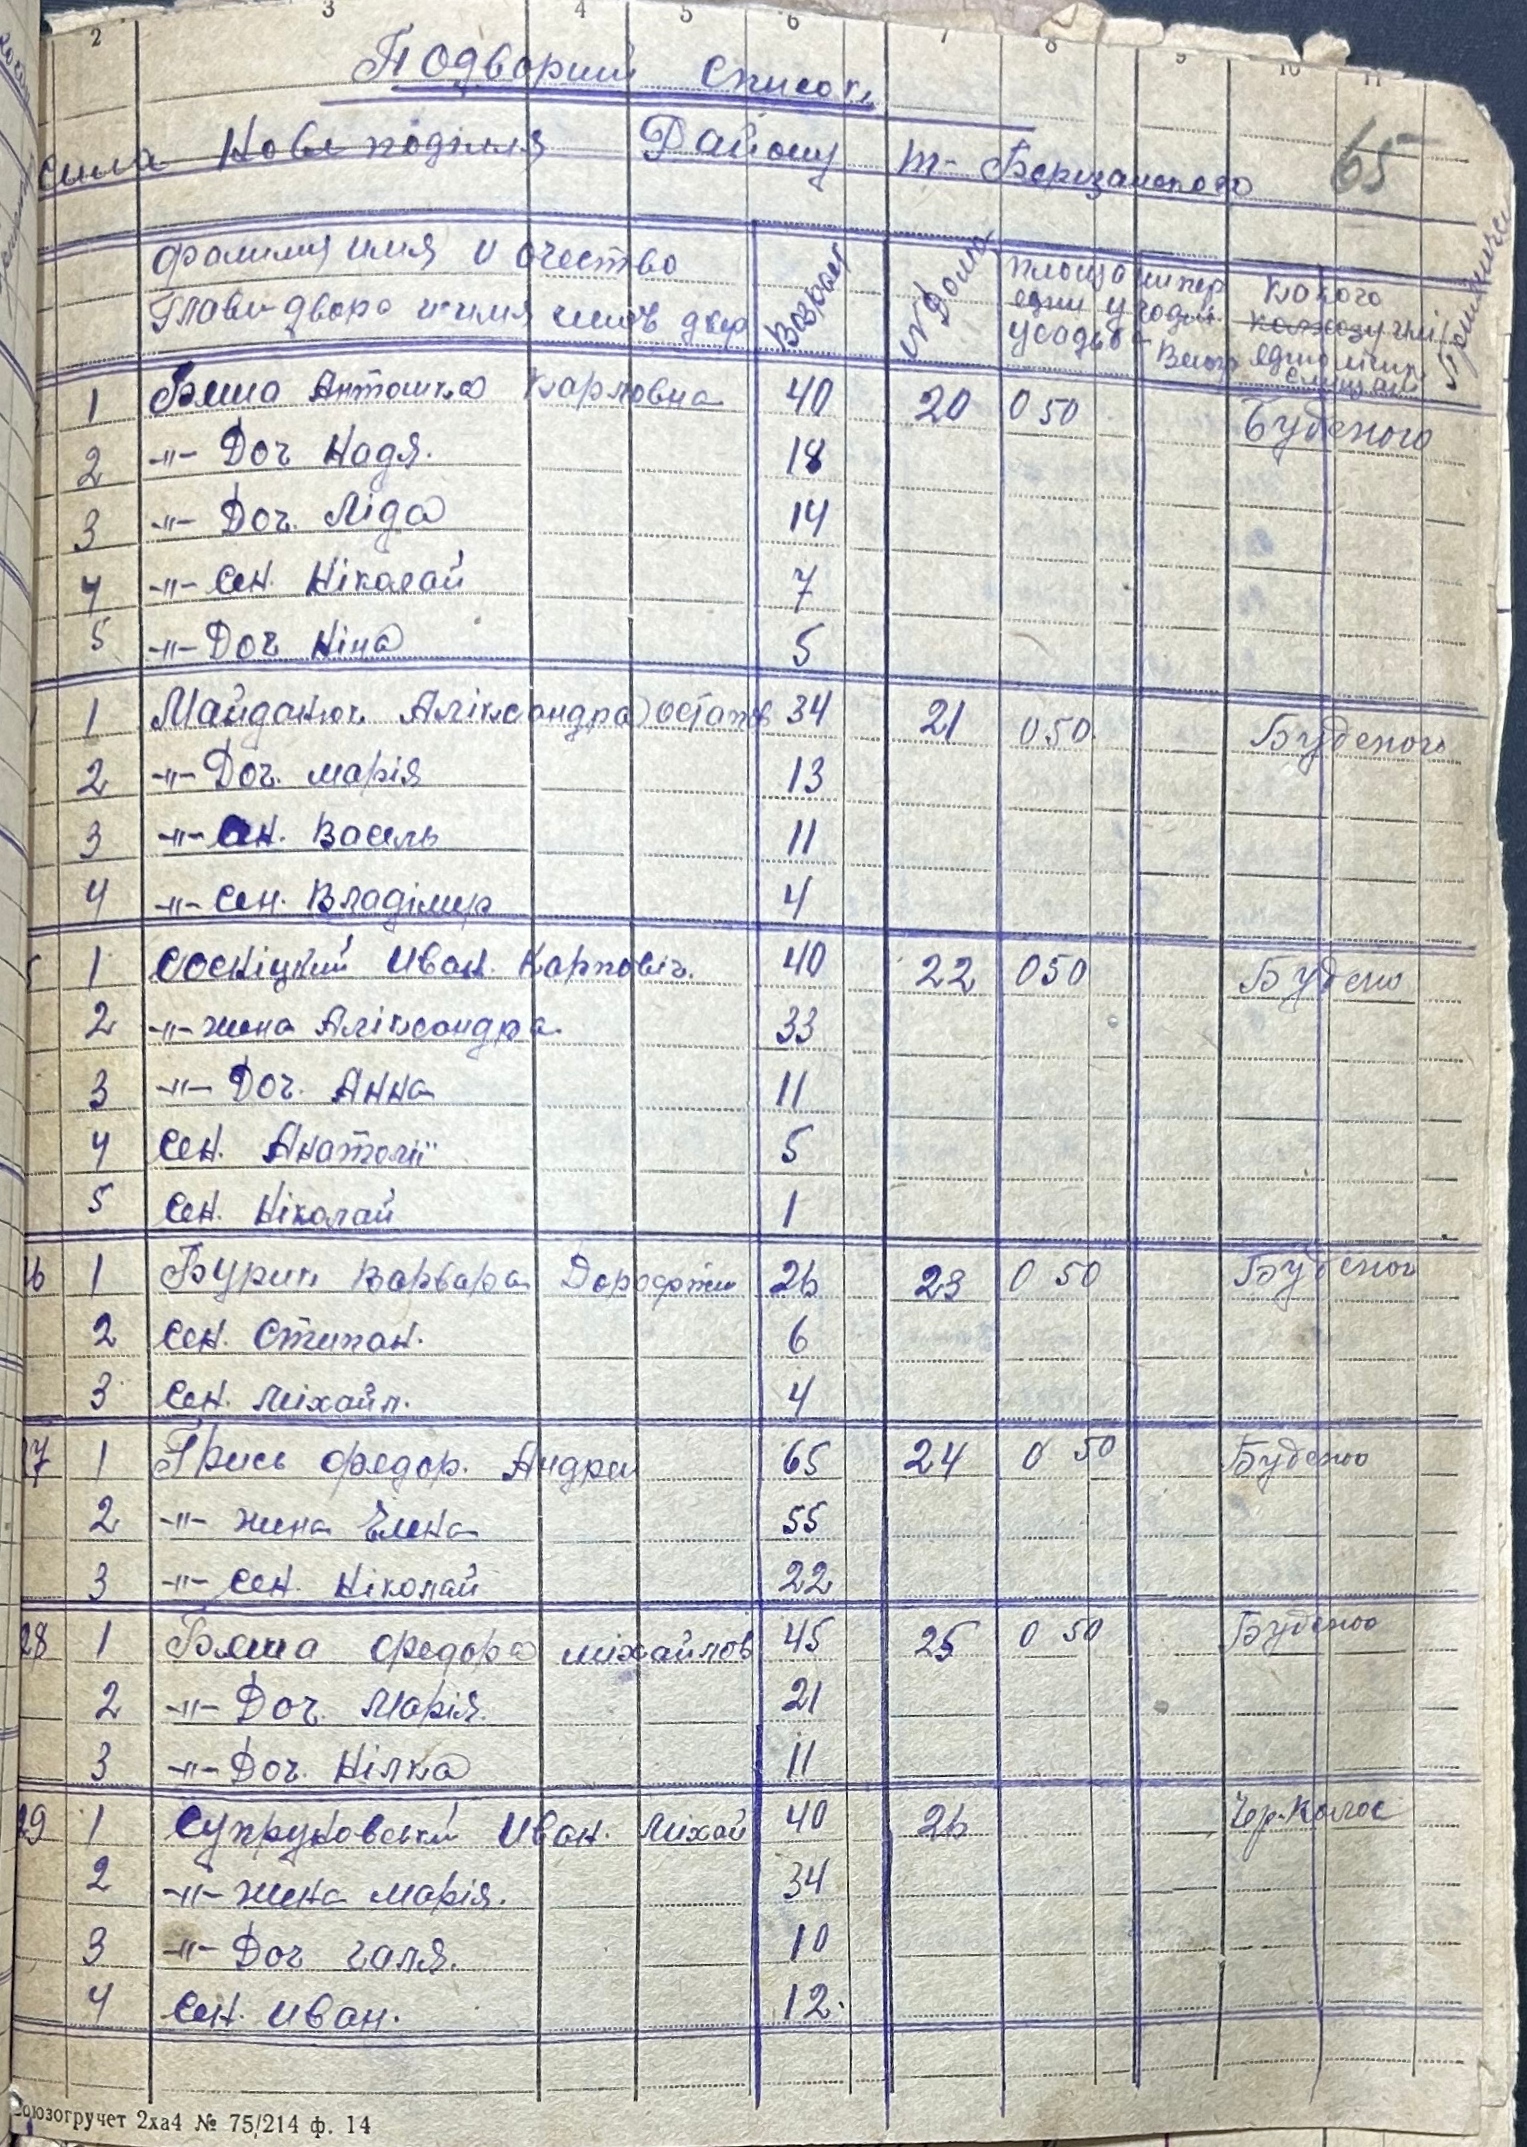 2 3 4 5 6 7 8 9 10 11
Подворний список
села Нове поділля Району т-Березанского 65
фамилия имя и очество Главы двора и имя член двор Возраст № Дома площа Всего какого колхозу Примиче
1 Бляша Антошка Карповна 40 20 0 50 Буденого
2 -"- Доч Надя. 18
3 -"- Доч. Ліда 14
4 -"- сен. Ніколай 7
5 -"- Доч Ніна 5
1 Майданюк Аліксандра остапов 34 21 0 50. Буденого
2 -"- Доч. марія 13
3 -"- сен. Василь 11
4 -"- сен. Владімир 4
1 Сосніцкий Иван. Карповіч. 40 22 0 50 Будено
2 -"- жина Аліксандра. 33
3 -"- Доч. Анна 11
4 сен. Анатолії 5
5 сен. Ніколай 1
26 1 Бурик Варвара Дорофти 26 23 0 50 Буденого
2 сен. Стипан. 6
3 сен. Міхайл. 4
27 1 Грись Федор. Андреи 65 24 0 50 Буденого
2 -"- жина Елена 55
3 -"- сен. Ніколай 22
28 1 Бляша Федора міхайлов 45 25 0 50 Буденого
2 -"- Доч. Марія. 21
3 -"- Доч. Нілка 11
29 1 Супруновский Иван. Міхай 40 26 Чер. Колос
2 -"- жина марія. 34
3 -"- Доч галя. 10
4 сен. иван. 12.
Союзоргучет 2ха4 № 75/214 ф. 14